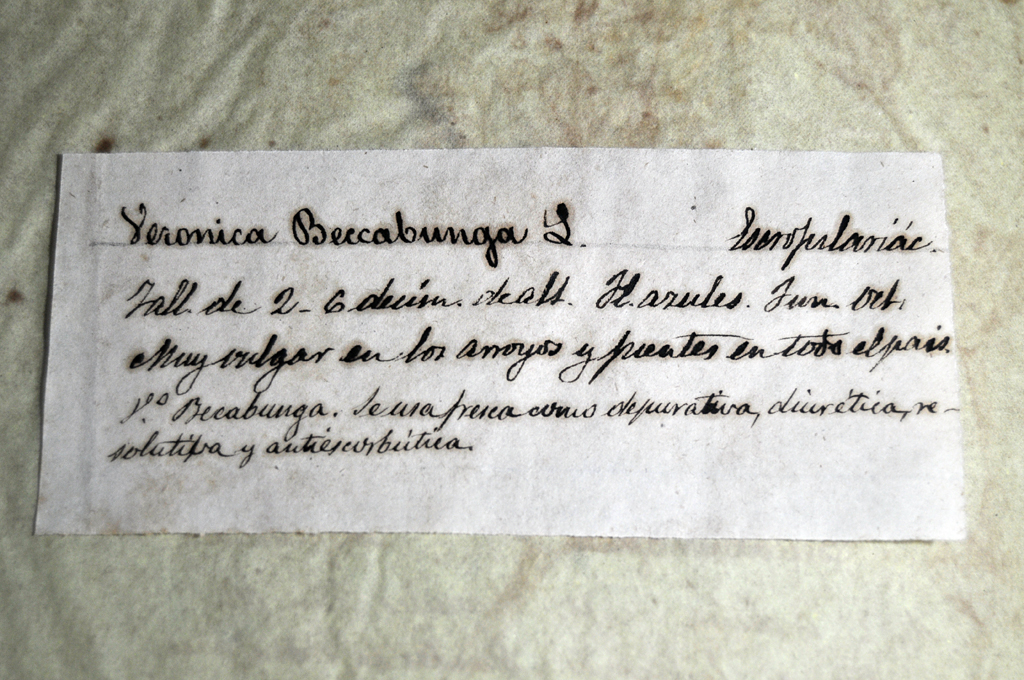 Veronica Beccabunga L. Escrofulariác.
Tall. de 2-6 decím. de alt. Fl. azules. Jun. Oct.
Muy vulgar en los arroyos y fuentes en todo el país.
V.º Becabunga. Se usa fresca como depurativa, diurética, re-
solutiva y antiescorbútica.